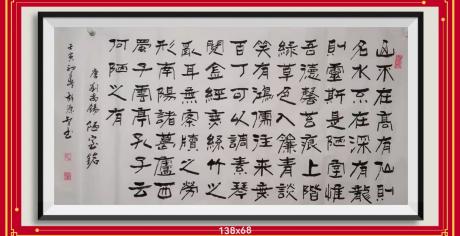 山不在高有仙則
名水不在深有龍
則靈斯是陋室惟
吾德馨苔痕上階
綠草色入簾青談
笑有鴻儒往來無
白丁可以調素琴
閱金經無絲竹之
亂耳無案牘之勞
形南陽諸葛廬西
蜀子雲亭孔子云
何陋之有
唐劉禹錫陋室銘
壬寅初書
138x68